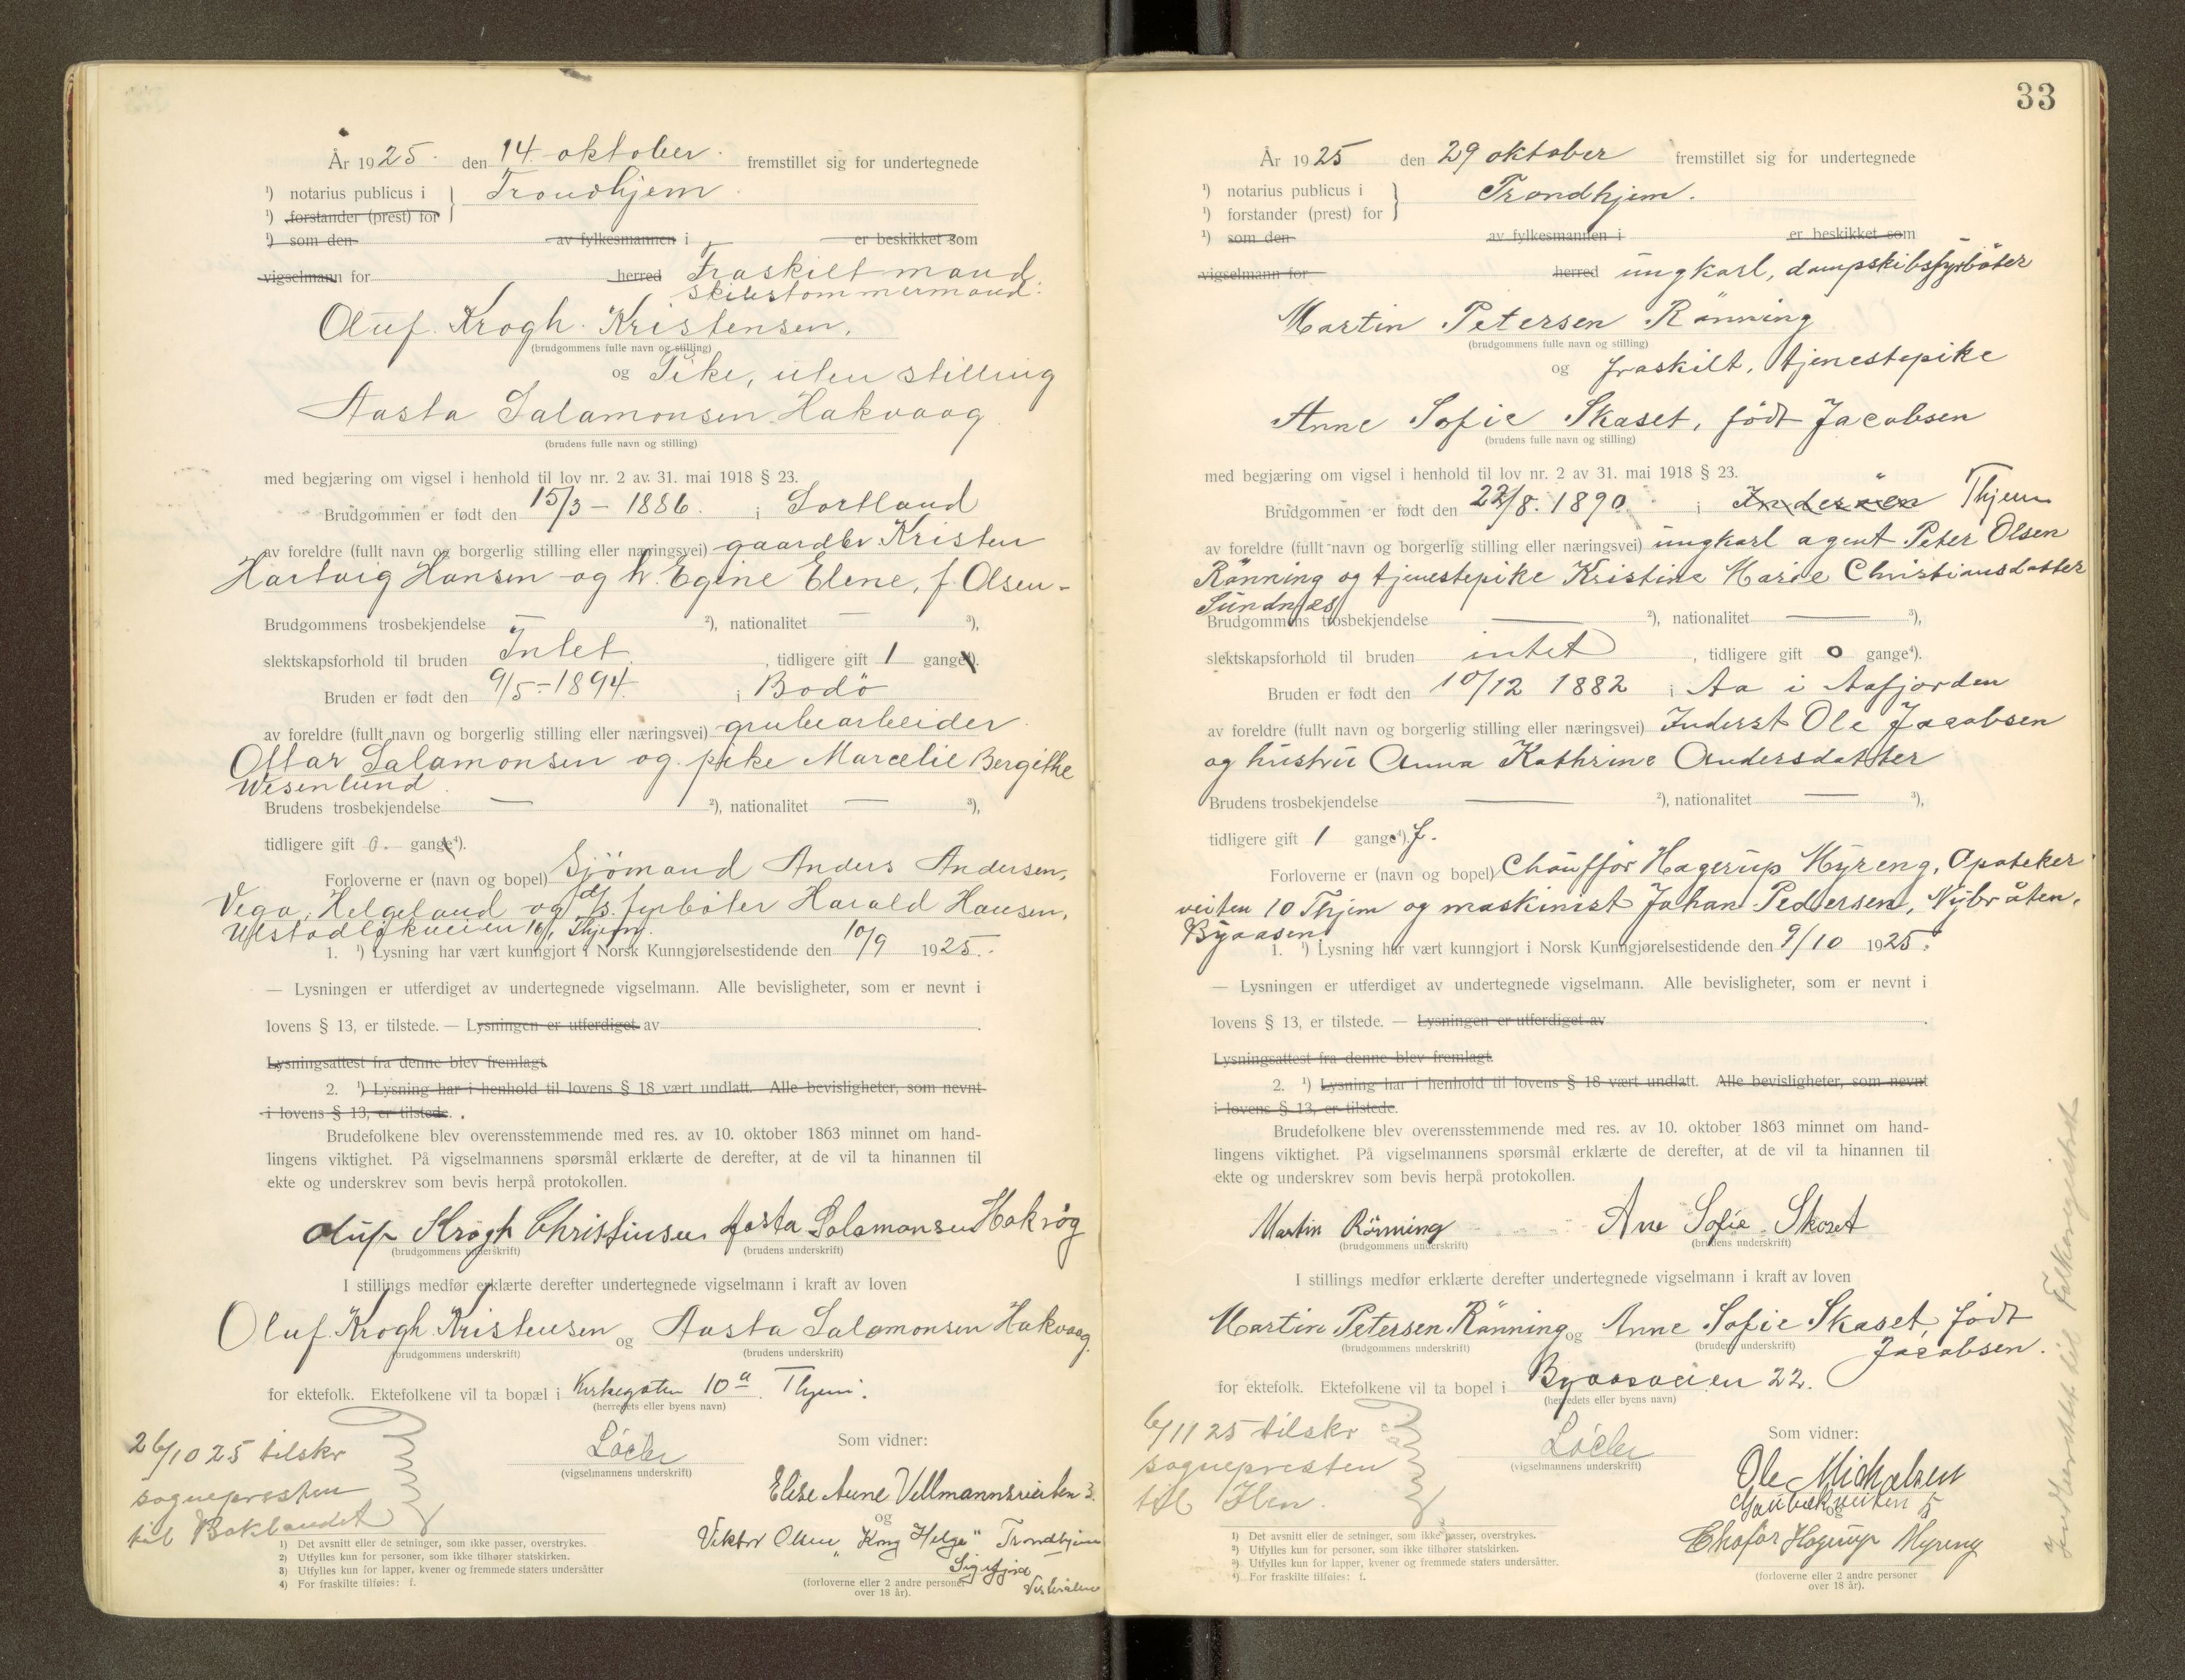 År 1925. den 14. oktober. fremstillet sig for undertegnede
¹) notarius publicus i } Trondhjem
¹) forstander (prest) for
¹) som den av fylkesmannen i er beskikket som
vigselmann for herred Fraskilt mand
skibstømmermand.
Oluf Krogh Kristensen.
(brudgommens fulle navn og stilling)
og Pike, uten stilling
Aasta Salamonsen Hakvaag
(brudens fulle navn og stilling)
med begjæring om vigsel i henhold til lov nr. 2 av. 31. mai 1918 § 23.
Brudgommen er født den 15/3 - 1886. i Sortland
av foreldre (fullt navn og borgerlig stilling eller næringsvei) gaardbr Kristen
Hartvig Hansen og h. Egine Elene, f. Olsen -
Brudgommens trosbekjendelse — ²), nationalitet — ³),
slektskapsforhold til bruden Intet, tidligere gift 1 gange⁴).
Bruden er født den 9/5 - 1894. i Bodö
av foreldre (fullt navn og borgerlig stilling eller næringsvei) grubearbeider
Ottar Salamonsen og pike Marcelie Bergithe
Wesenlund
Brudens trosbekjendelse — ²), nationalitet — ³),
tidligere gift 0. gange⁴).
Forloverne er (navn og bopel) Sjömand Anders Andersen,
Vega, Helgeland og d/s. fyrböter Harald Hansen,
Ulstadlökveien 16/1, Thjem.
1. ¹) Lysning har vært kunngjort i Norsk Kunngjørelsestidende den 10/9 1925.
— Lysningen er utferdiget av undertegnede vigselmann. Alle bevisligheter, som er nevnt i
lovens § 13, er tilstede. — Lysningen er utferdiget av
Lysningsattest fra denne blev fremlagt.
2. ¹) Lysning har i henhold til lovens § 18 vært undlatt. Alle bevisligheter, som nevnt
i lovens § 13, er tilstede.
Brudefolkene blev overensstemmende med res. av 10. oktober 1863 minnet om hand-
lingens viktighet. På vigselmannens spørsmål erklærte de derefter, at de vil ta hinannen til
ekte og underskrev som bevis herpå protokollen.
Oluf Krogh Christensen Aasta Salamonsen Hakvåg
(brudgommens underskrift) (brudens underskrift)
I stillings medfør erklærte derefter undertegnede vigselmann i kraft av loven
Oluf Krogh Kristensen og Aasta Salamonsen Hakvaag.
(brudgommens underskrift) (brudens underskrift)
for ektefolk. Ektefolkene vil ta bopæl i Kirkegaten 10 a Thjem.
(herredets eller byens navn)
26/10 25 tilskr
sognepresten
til Baklandet
(vigselmannens underskrift)
Som vidner:
Elise Aune Vellmannsveiten 3.
og
Viktor Olsen "Kong Helge" Trondhjem
Sigerfjord
Vesterålen
(forloverne eller 2 andre personer
over 18 år).
1) Det avsnitt eller de setninger, som ikke passer, overstrykes.
2) Utfylles kun for personer, som ikke tilhører statskirken.
3) Utfylles kun for lapper, kvener og fremmede staters undersåtter
4) For fraskilte tilføies: f.
33
År 1925 den 29 oktober fremstillet sig for undertegnede
¹) notarius publicus i } Trondhjem.
¹) forstander (prest) for
¹) som den av fylkesmannen i er beskikket som
vigselmann for herred ungkarl, dampskibsfyrböter
Martin Petersen Rönning
(brudgommens fulle navn og stilling)
og fraskilt, tjenestepike
Anne Sofie Skaset, födt Jacobsen
(brudens fulle navn og stilling)
med begjæring om vigsel i henhold til lov nr. 2 av 31. mai 1918 § 23.
Brudgommen er født den 22/8. 1890. i Inderöen Thjem
av foreldre (fullt navn og borgerlig stilling eller næringsvei) ungkarl agent Peter Olsen
Rönning og tjenestepike Kristine Marie Christiansdatter
Sundnæs
Brudgommens trosbekjendelse — ²), nationalitet — ³),
slektskapsforhold til bruden intet, tidligere gift 0 gange⁴).
Bruden er født den 10/12 1882 i Aa i Aafjorden
av foreldre (fullt navn og borgerlig stilling eller næringsvei) Inderst Ole Jacobsen
og hustru Anna Kathrine Andersdatter
Brudens trosbekjendelse — ²), nationalitet — ³),
tidligere gift 1 gange⁴) f.
Forloverne er (navn og bopel) Chaufför Hagerup Myreng, Apoteker
veiten 10 Thjem og maskinist Johan Pedersen, Nybråten,
Byaasen.
1. ¹) Lysning har vært kunngjort i Norsk Kunngjørelsestidende den 9/10 1925.
— Lysningen er utferdiget av undertegnede vigselmann. Alle bevisligheter, som er nevnt i
lovens § 13, er tilstede. — Lysningen er utferdiget av
Lysningsattest fra denne blev fremlagt.
2. ¹) Lysning har i henhold til lovens § 18 vært undlatt. Alle bevisligheter, som nevnt
i lovens § 13, er tilstede.
Brudefolkene blev overensstemmende med res. av 10. oktober 1863 minnet om hand-
lingens viktighet. På vigselmannens spørsmål erklærte de derefter, at de vil ta hinannen til
ekte og underskrev som bevis herpå protokollen.
Martin Rönning Ane Sofie Skaset
(brudgommens underskrift) (brudens underskrift)
I stillings medfør erklærte derefter undertegnede vigselmann i kraft av loven
Martin Petersen Rönning og Anne Sofie Skaset, födt
Jacobsen.
(brudgommens underskrift) (brudens underskrift)
for ektefolk. Ektefolkene vil ta bopel i Byaasveien 22.
(herredets eller byens navn)
6/11 25 tilskr
sognepresten
til Ilen.
(vigselmannens underskrift)
Som vidner:
Ole Mickelsen
Gaubækveiten 5
og
Chafør Hagerup Myreng
(forloverne eller 2 andre personer
over 18 år).
¹) Det avsnitt eller de setninger, som ikke passer, overstrykes.
²) Utfylles kun for personer, som ikke tilhører statskirken.
³) Utfylles kun for lapper, kvener og fremmede staters undersåtter.
⁴) For fraskilte tilføies: f.
Indberettet til Folkeregistret